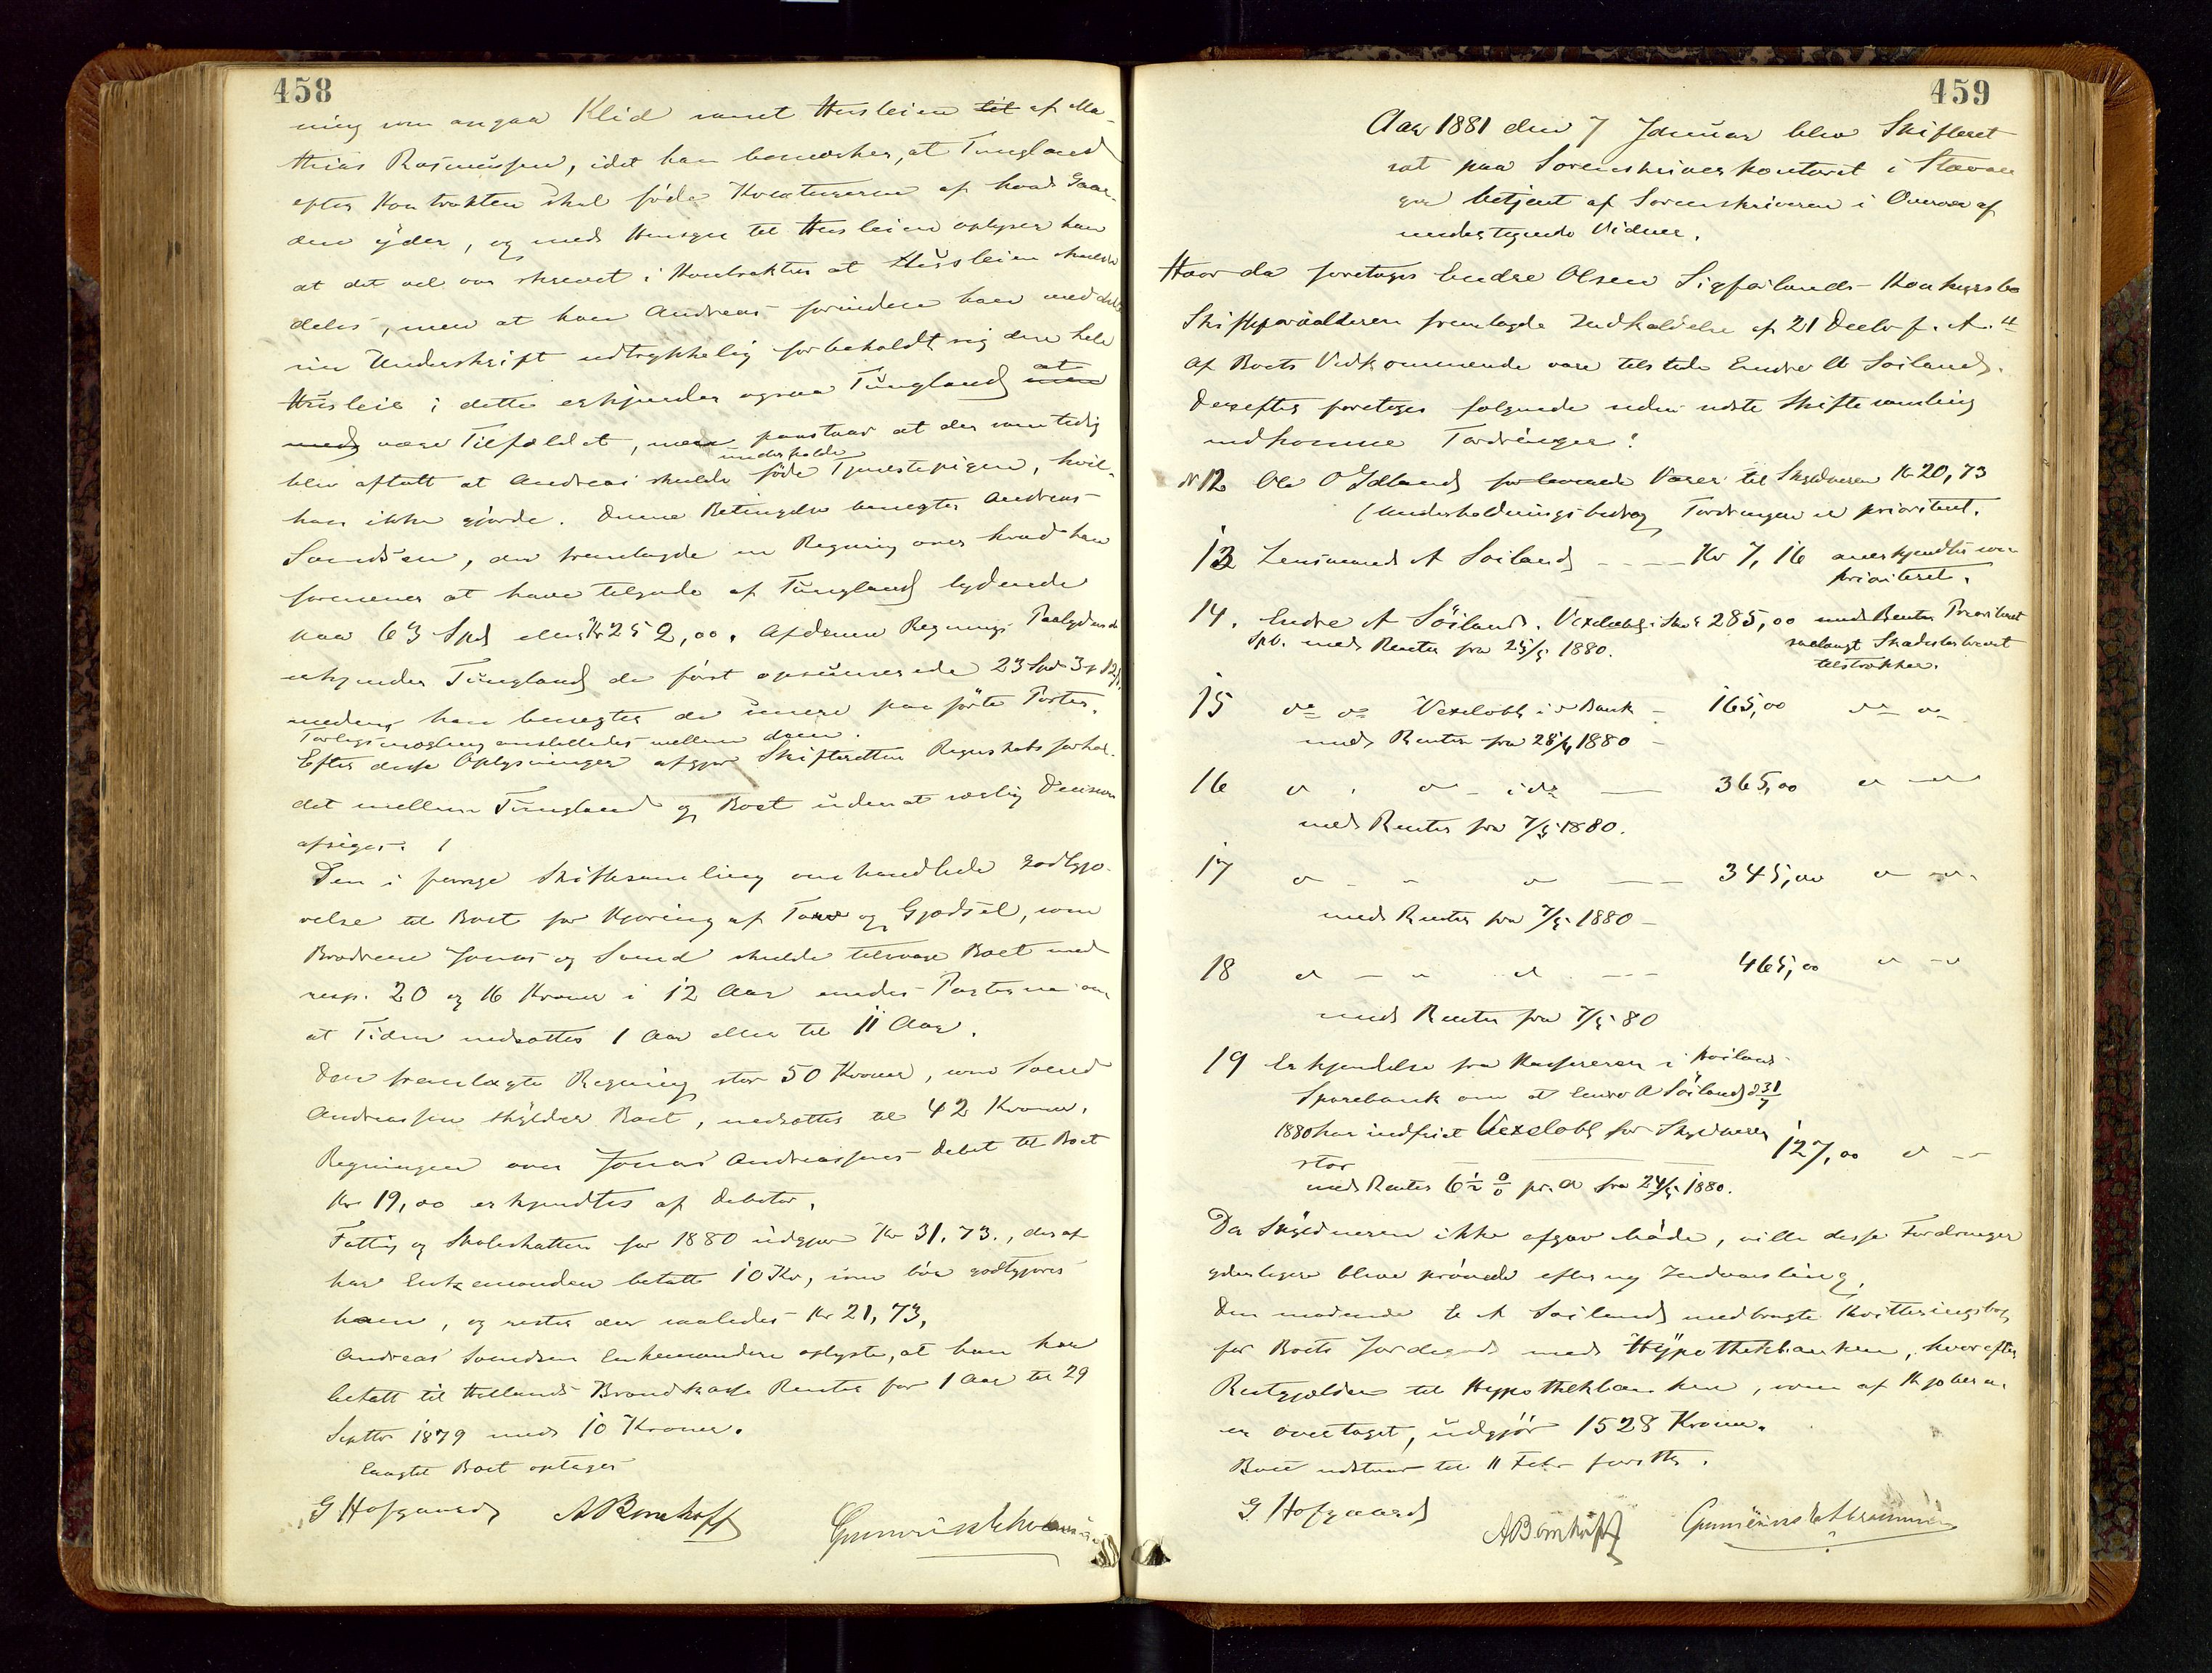 458
ning som angaa Klid samt Husleien til af Ma-
thias Rasmussen, idet han bemærker, at Tungland
efter Kontrakten skal føde Kreaturerne af hvad Gaar-
den yder, og med Hensyn til Husleien oplyser han
at det vel var skrevet i Kontrakten at Husleien skulde
deles, men at han Andreas forinden han meddelte
sin Underskrift udtrykkelig forbeholdt sig den hele
Husleie i dette erkjender ogsaa Tungland at
med være Tilfældet, men paastaar at der samtidig
underholde
blev aftalt at Andreas skulde føde Tjenestepigen, hvil-
han ikke gjorde. Denne Betingelse benegter Andreas
Svendsen, der fremlagde en Regning over hvad han
formener at have tilgode af Tungland lydende
paa 63 Spd eller Kr 252,00. Af denne Regnings Paalydende
erkjender Tungland de først opsummerede 23 Spd 3 12
medens han benegter de senere paaførte Poster.
Forligsmægling anstilledes mellem dem.
Efter disse Oplysninger afgjør Skifteretten Regnskabsforhol-
det mellem Tungland og Boet uden at særlig Decision
afsiges.
Den i forrige Skiftesamling omhandlede Godtgjø-
relse til Boet for Kjøring af Torv og Gjødsel, som
Brødrene Jonas og Svend skulde tilsvare Boet med
resp. 20 og 16 Kroner i 12 Aar enedes Parterne om
at Tiden nedsættes 1 Aar eller til 11 Aar.
Den fremlagte Regning stor 50 Kroner, som Svend
Andreassen skylder Boet, nedsættes til 42 Kroner.
Regningen over Jonas Andreassens Debet til Boet
Kr 19,00 erkjendtes af Debitor.
Fattig og Skoleskatten for 1880 udgjør Kr 31.73., deraf
har Enkemanden betalt 10 Kr, som bør godtgjøres
ham, og rester der saaledes Kr 21,73,
Andreas Svendsen Enkemanden oplyste, at han har
betalt til Hetlands Brandkasse Renter for 1 Aar til 29
Septbr 1879 med 10 Kroner.
Saagtil Boet optages
G Hofgaard A Bomhoff
459
Aar 1881 den 7 Januar blev Skifteret
sat paa Sorenskriverkontoret i Stavan
ger betjent af Sorenskriveren i Overvær af
undertegnede Vidner.
Hvorda foretoges Endre Olsen Sigfeilands Konkursbo
Skifteforvalteren fremlagde Indkaldelse af 21 Decbr f. A.
Af Boets Vedkommende vare tilstede Endre A Soiland.
Derefter foretoges følgende siden sidste Skiftesamling
indkomne Fordringer:
N 12 Ole O Edland for leverede Varer til Skyldneren Kr 20,73
(Underholdningsbidrag Fordringen er prioriteret.
13 Lensmand A Soiland - - - Kr 7,16 anerkjendtes som
prioriteret.
14. Endre A Söiland. Vexelobl i Stav 285,00 med Renter Prioriteret
Spb. med Renter fra 25/5 1880. saalangt Skadesløsbrevet
tilstrækker.
15 do do Vexelobl i do Bank - 165,00 do do
med Renter fra 28/4 1880 -
16 do do - i do - 365,00 do do
med Renter fra 7/5 1880.
17 do - - do - 345,00 do do
med Renter fra 7/5 1880 -
18 do - - do - 465,00 do do
med Renter fra 7/5 80
19 Erkjendelse fra Kassereren i Høiland
Sparebank om at Endre A Söiland d 31/7
1880 har indfriet Vexelobl for Skyldneren
stor 127,00 do
med Renter 6 1/2 % pr. A fra 24/5 1880.
Da Skyldneren ikke afgav Møde, ville disse Fordringer
yderligere blive prøvede efter ny Indvarsling,
Den mødende E A Soiland medbragte Kvitteringsbog
for Boets Jordegods med Hypothekbanken, hvorefter
Restgjælden til Hypothekbanken, som af Kjøberen
er overtaget, udgjør 1528 Kroner.
Boet udstaar til 11 Febr førstk.
G Hofgaard A Bomhoff